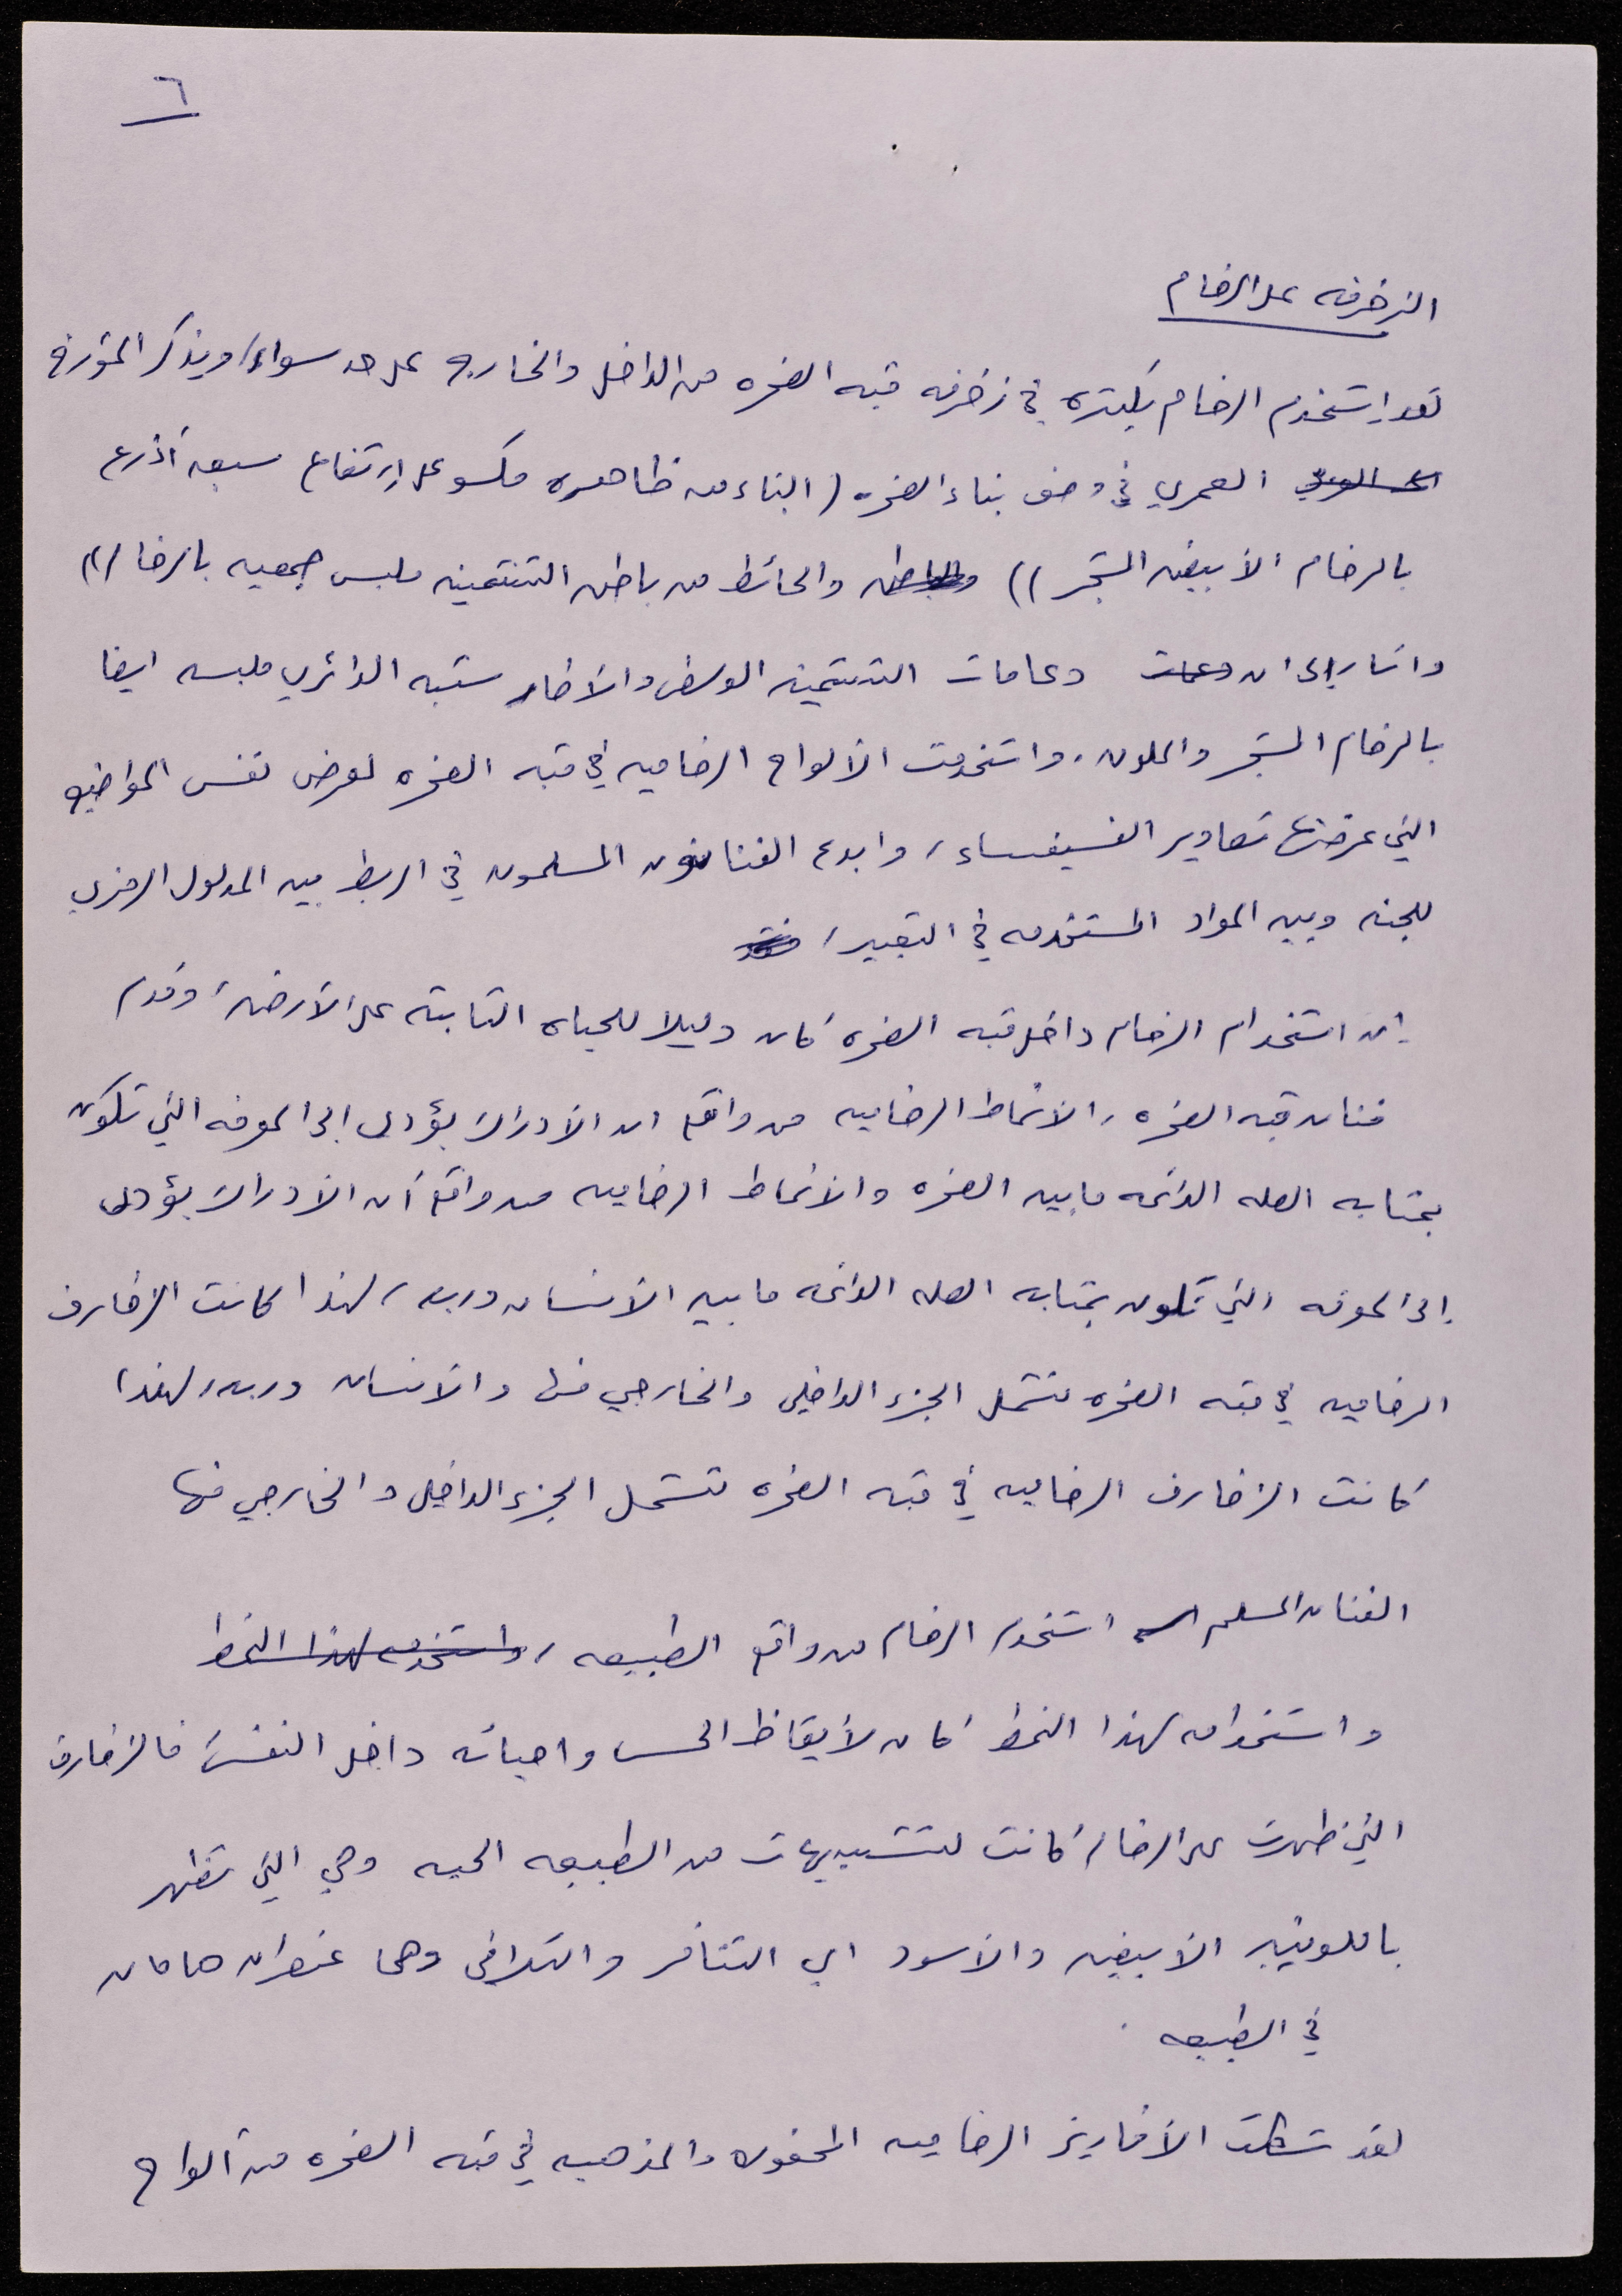 ٦
الزخرفه على الرخام
لقد إستخدم الرخام بكثره في زخرفه قبه الصخره من الداخل والخارج على حد سواء، ويذكر المؤرخ
العمري في وصف بناء الصخره (البناء من ظاهره مكسو على إرتفاع سبعه أذرع
بالرخام الأبيض المشجر)) والباطن والحائط من باطن التثمينه ملبس جميعه بالرخام))
واشار إلى ان دعمات دعامات التثمينه الوسطى والأطار شبه الدائري ملبسه ايضا
بالرخام المشجر والملون. واستخدمت الألواح الرخاميه في قبه الصخره لعرض نفس المواضيع
التي عرضتها تصاوير الفسيفساء، وابدع الفنانون المسلمون في الربط بين المدلول الرمزي
للجنه وبين المواد المستخدمه في التعبير،
إن استخدام الرخام داخل قبه الصخره كان دليلا للحياه الثابته على الأرض، وقدم
فنان قبه الصخره، الانماط الرخاميه من واقع ان الأدراك يؤدى إلى المعرفه التي تكون
بمثابه الصله الدائمه ما بين الصخره والانماط الرخاميه من واقع أن الأدراك يؤدى
إلى المعرفه التي تكون بمثابه الصله الدائمه ما بين الأنسان وربه، لهذا كانت الزخارف
الرخاميه في قبه الصخره تشمل الجزء الداخلي والخارجي منها والأنسان وربه، لهذا
كانت الزخارف الرخاميه في قبه الصخره تشمل الجزء الداخلي والخارجي منها
الفنان المسلم استخدم الرخام من واقع الطبيعه، واستخدمه لهذا النمط
واستخدامه لهذا النمط كان لأيقاظ الحس واحيائه داخل النفس، فالزخارف
التي ظهرت على الرخام كانت لتشبيهات من الطبيعه الحيه وهي التي تظهر
باللونين الأبيض والأسود اي التنافر والتلاقى وهما عنصران هامان
في الطبيعه.
لقد تشكلت الأفاريز الرخاميه المحفوره والمذهبه في قبه الصخره من ألواح